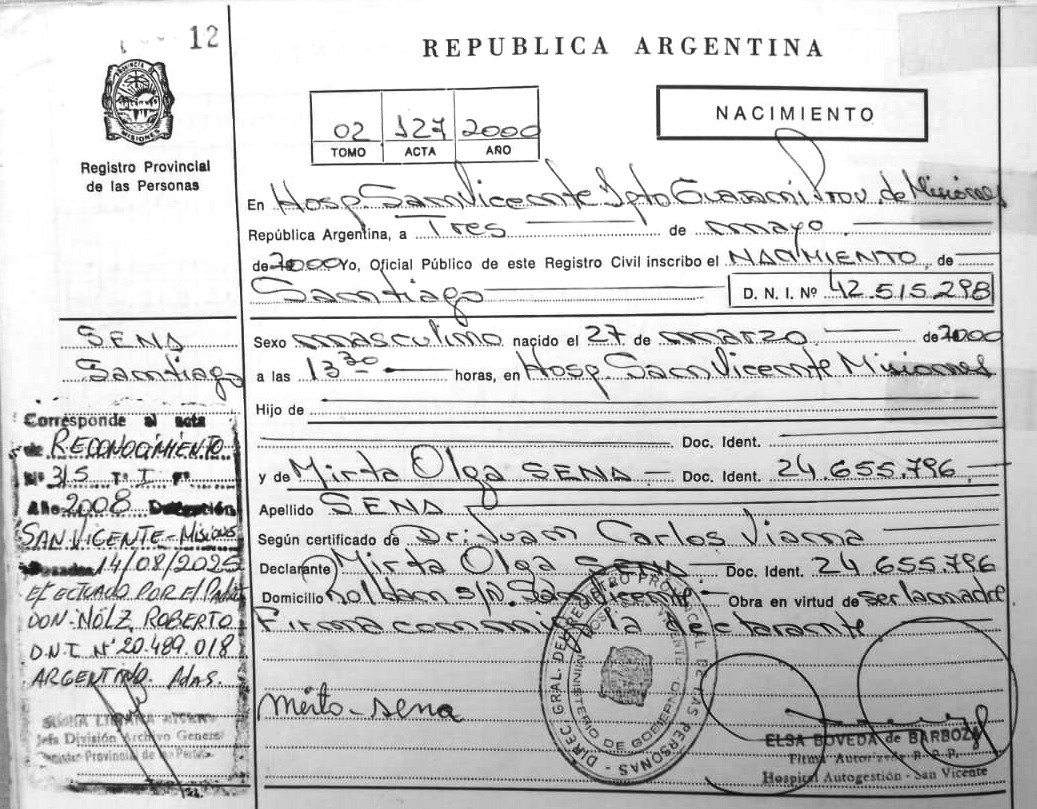 12
REPUBLICA ARGENTINA
PROVINCIA DE
MISIONES
Registro Provincial
de las Personas
02 127 2000
TOMO ACTA AÑO
NACIMIENTO
En Hosp. San Vicente Dpto Guaraní Prov. de Misiones
República Argentina, a Tres de mayo
de 2000 Yo, Oficial Público de este Registro Civil inscribo el NACIMIENTO de
Santiago D. N. I. Nº 42.515.298
SENA
Santiago
Sexo masculino nacido el 27 de marzo de 2000
a las 13 30 horas, en Hosp. San Vicente Misiones
Hijo de
Doc. Ident.
y de Mirta Olga SENA Doc. Ident. 24.655.796
Apellido SENA
Según certificado de Dr. Juan Carlos Vianna
Declarante Mirta Olga SENA Doc. Ident. 24.655.796
Domicilio Roldan s/n. San Vicente Obra en virtud de ser la madre
Firma conmigo la declarante
Corresponde al acta
de RECONOCIMIENTO
Nº 315 Tº I Fº
Año 2008 Delegación
SAN VICENTE - Misiones
Posadas 14/08/2025
EFECTUADO POR EL Padre
DON NÖLZ ROBERTO
D.N.I. Nº 20.489.018
ARGENTINO. Adas.
Jefa División Archivo General
Registro Provincial de las Personas
DIREC. GRAL. DEL REGISTRO PROVINCIAL DE LAS PERSONAS
MINISTERIO DE GOBIERNO
ELSA BOVEDA de BARBOZA
Firma Autorizada R. P. P.
Hospital Autogestión - San Vicente